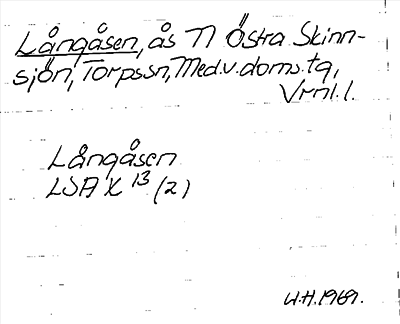 Långåsen, ås N Östra Skinn-
sjön, Torpssn, Med.v.doms.tg,
Vrml.l.
Långåsen
LSA K 13 (2)
W.H. 1969.